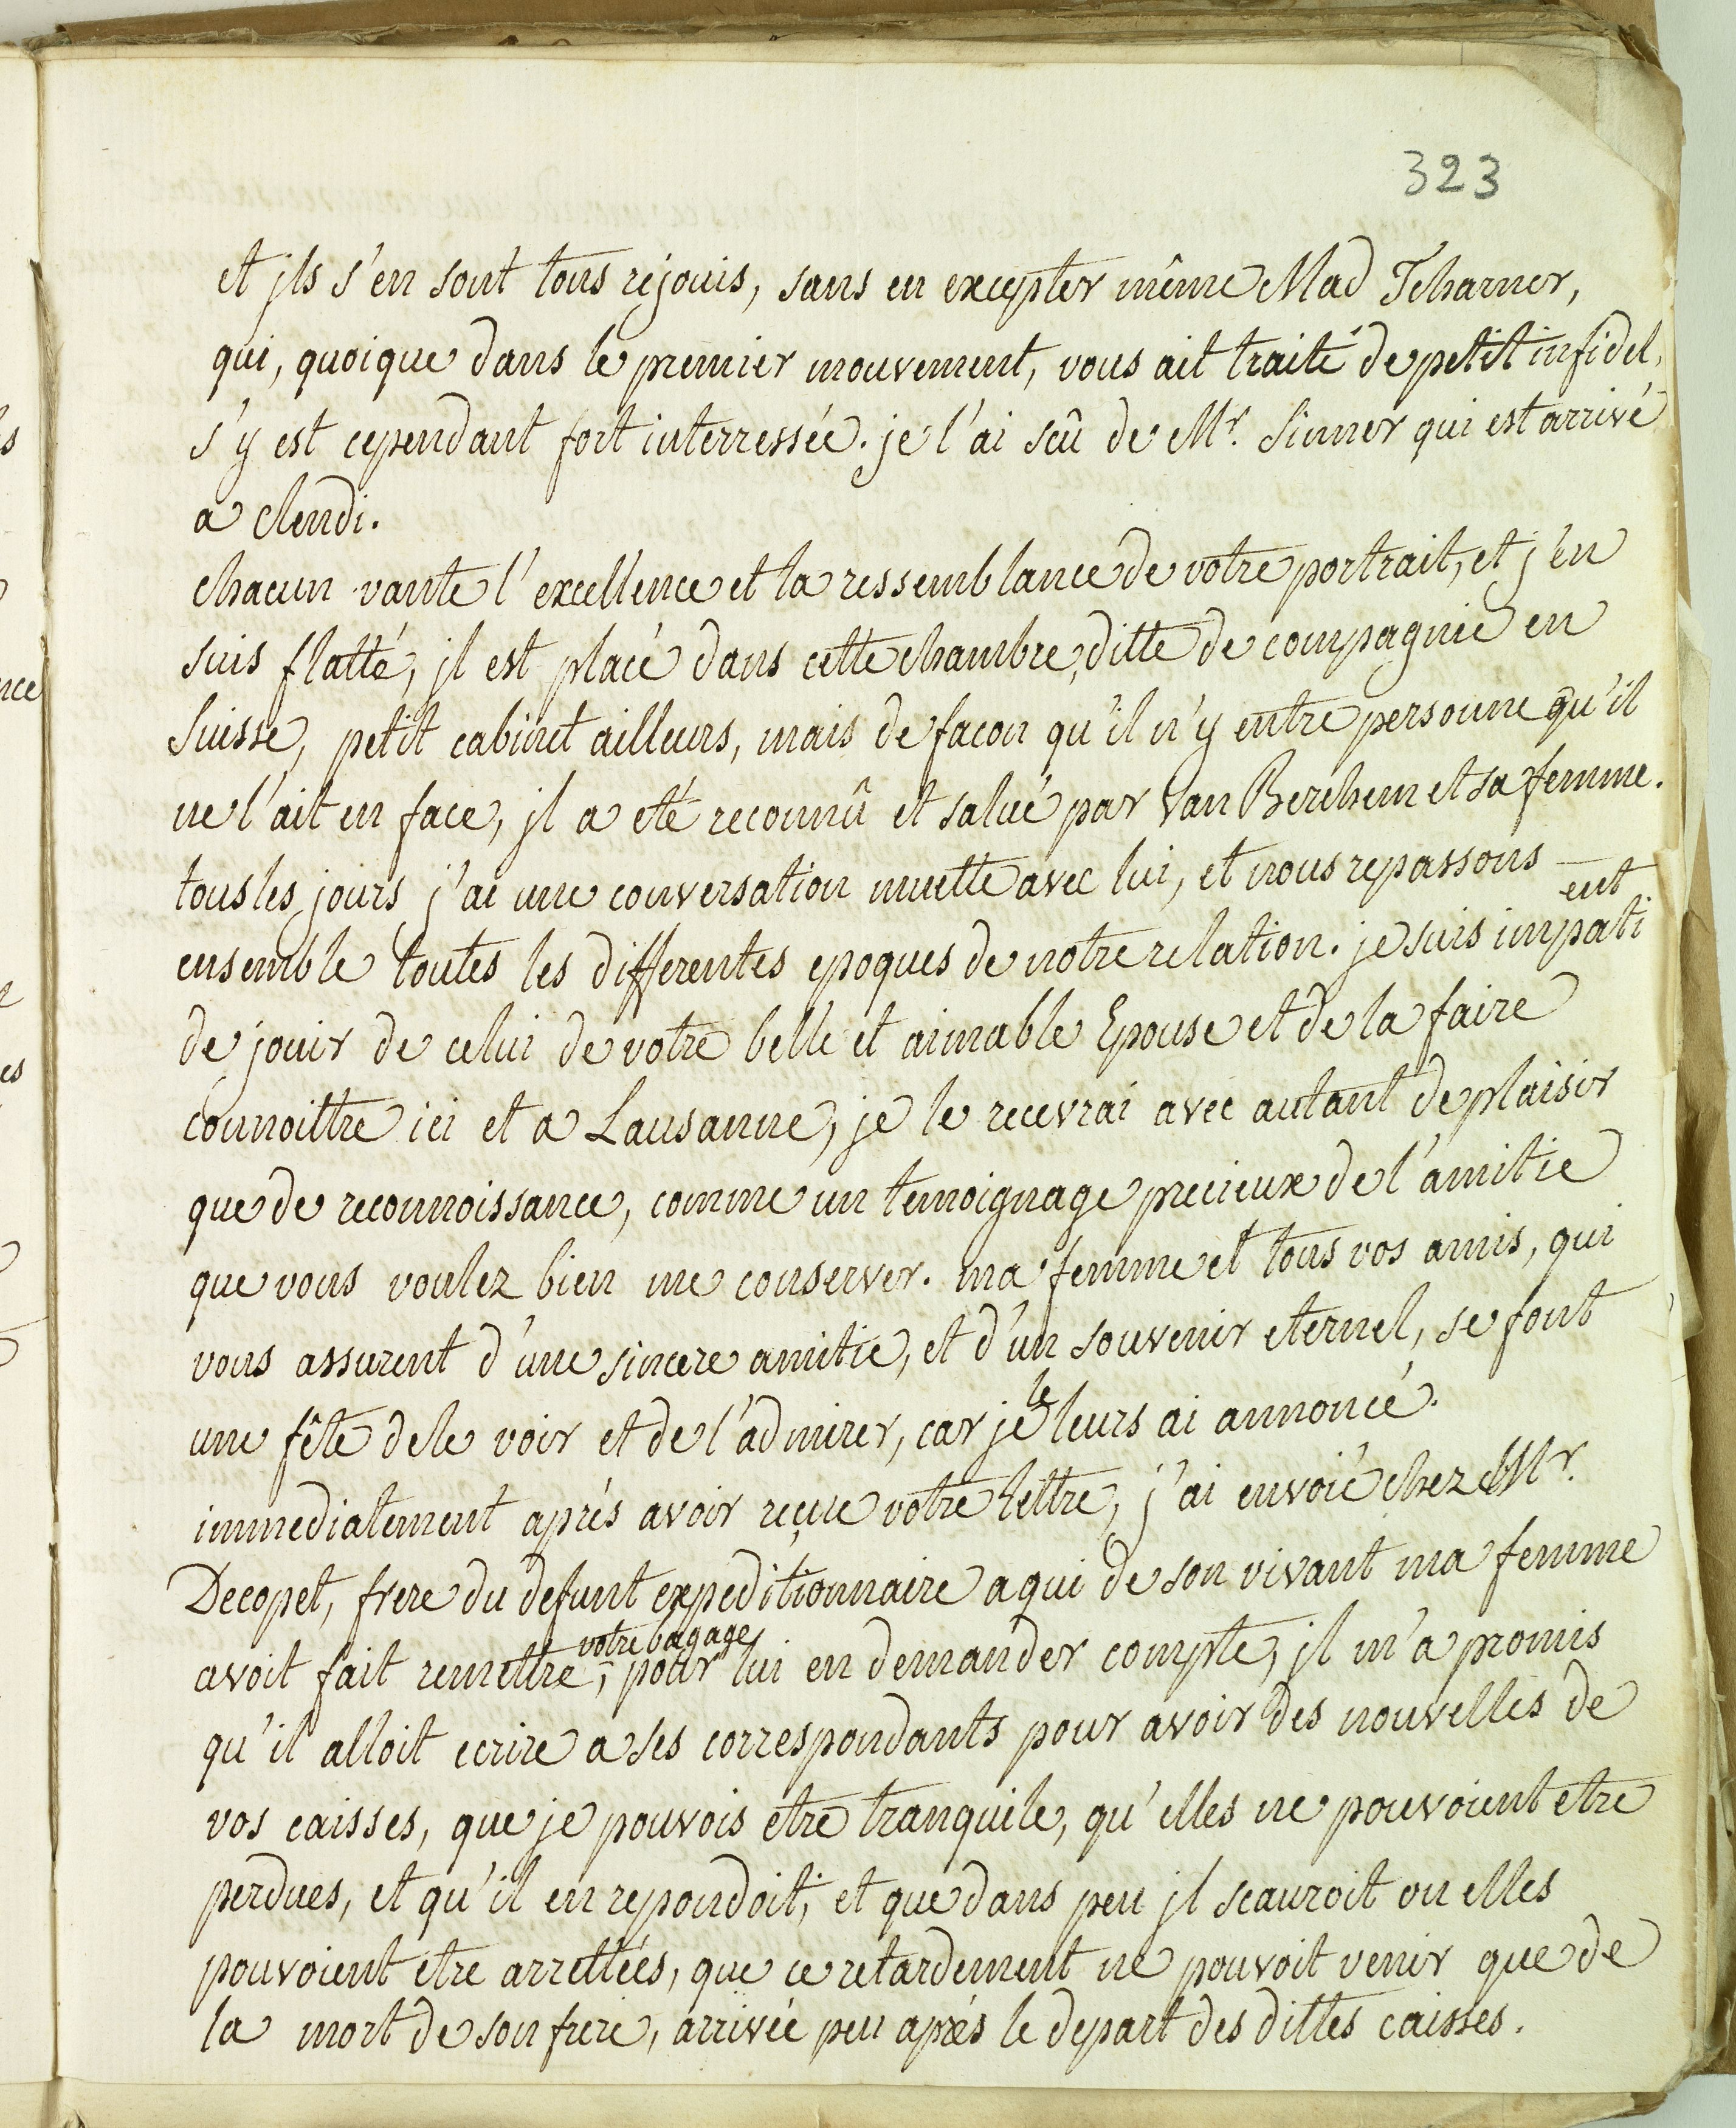 323
et jls s'en sont tous rejouis, sans en excepter même Mad Tcharner,
qui, quoique dans le premier mouvement, vous ait traité de petit infidel,
s'y est cependant fort interressée. je l'ai scû de Mr. Sinner qui est arrivé
a Clendi.
chacun vante l'excellence et la ressemblance de votre portrait, et j'en
suis flatté, jl est placé dans cette chambre, ditte de compagnie en
Suisse, petit cabinet ailleurs, mais de facon qu'il n'y entre personne qu'il
ne l'ait en face, jl a eté reconnû et salué par Van Berchem et sa femme.
tous les jours j'ai une conversation muette avec lui, et nous repassons
ensemble toutes les differentes epoques de notre relation. je suis impatient
de jouir de celui de votre belle et aimable Epouse et de la faire
connoittre ici et a Lausanne, je le recevrai avec autant de plaisir
que de reconnoissance, comme un temoignage precieux de l'amitie
que vous voulez bien me conserver. ma femme et tous vos amis, qui
vous assurent d'une sincere amitie, et d'un souvenir eternel, se font
une fête de le voir et de l'admirer, car je le leurs ai annoncé.
immediatement aprés avoir reçue votre lettre, j'ai envoié chez Mr.
Decopet, frere du defunt expeditionnaire a qui de son vivant ma femme
avoit fait remettre votre bagage, pour lui en demander compte, jl m'a promis
qu'il alloit ecrire a ses correspondants pour avoir des nouvelles de
vos caisses, que je pouvois etre tranquile, qu'elles ne pouvoient etre
perdues, et qu'il en repondoit, et que dans peu jl scauroit ou elles
pouvoient etre arrettées, que ce retardement ne pouvoit venir que de
la mort de son frere, arrivée peu aprés le depart des dittes caisses.